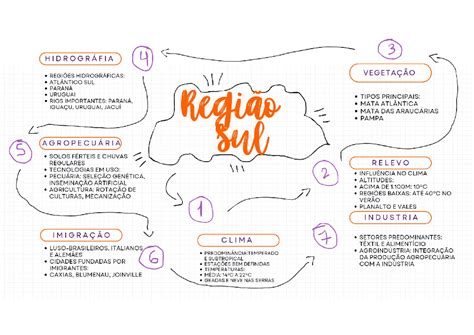 Região
Sul
1
CLIMA
• PREDOMINANTE: TEMPERADO
E SUBTROPICAL
• ESTAÇÕES BEM DEFINIDAS
• TEMPERATURAS:
• MÉDIA: 14°C A 22°C
• GEADAS E NEVE NAS SERRAS
2
RELEVO
• INFLUÊNCIA NO CLIMA
• ALTITUDES:
• ACIMA DE 1.100M: 10°C
• REGIÕES BAIXAS: ATÉ 40°C NO
VERÃO
• PLANALTO E VALES
3
VEGETAÇÃO
• TIPOS PRINCIPAIS:
• MATA ATLÂNTICA
• MATA DAS ARAUCÁRIAS
• PAMPA
4
HIDROGRÁFIA
• REGIÕES HIDROGRÁFICAS:
• ATLÂNTICO SUL
• PARANÁ
• URUGUAI
• RIOS IMPORTANTES: PARANÁ,
IGUAÇU, URUGUAI, JACUÍ
5
AGROPECUÁRIA
• SOLOS FÉRTEIS E CHUVAS
REGULARES
• TECNOLOGIAS EM USO:
• PECUÁRIA: SELEÇÃO GENÉTICA,
INSEMINAÇÃO ARTIFICIAL
• AGRICULTURA: ROTAÇÃO DE
CULTURAS, MECANIZAÇÃO
6
IMIGRAÇÃO
• LUSO-BRASILEIROS, ITALIANOS
E ALEMÃES
• CIDADES FUNDADAS POR
IMIGRANTES:
• CAXIAS, BLUMENAU, JOINVILLE
7
INDUSTRIA
• SETORES PREDOMINANTES:
TÊXTIL E ALIMENTÍCIO
• AGROINDÚSTRIA: INTEGRAÇÃO
DA PRODUÇÃO AGROPECUÁRIA
COM A INDÚSTRIA